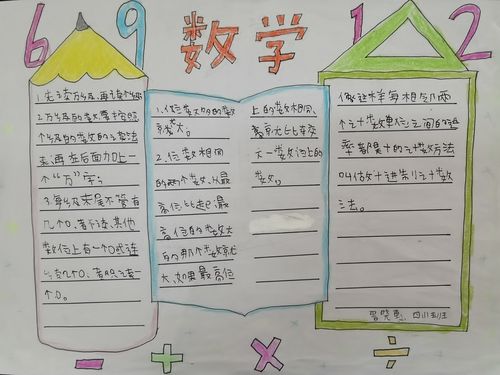 6 9 数学 1 2
1.先读万级,再读个级
2.万级的数要按照
个级的数的读法
来读,再在后面加上一
个“万”字;
3.每级末尾不管有
几个0,都不读,其他
数位上有一个0或连
个0。
1.位数大的的数
就大。
2.位数相同
的两个数,从最
高位比起,最
高位的数大
的那个数就
大,如果最高位
上的数相同,
就比下一数位上的
数。
像这样每相邻两
个计数单位之间的
率都是十的计数方法
叫做十进制计数
法。
四(1)班
- + × ÷